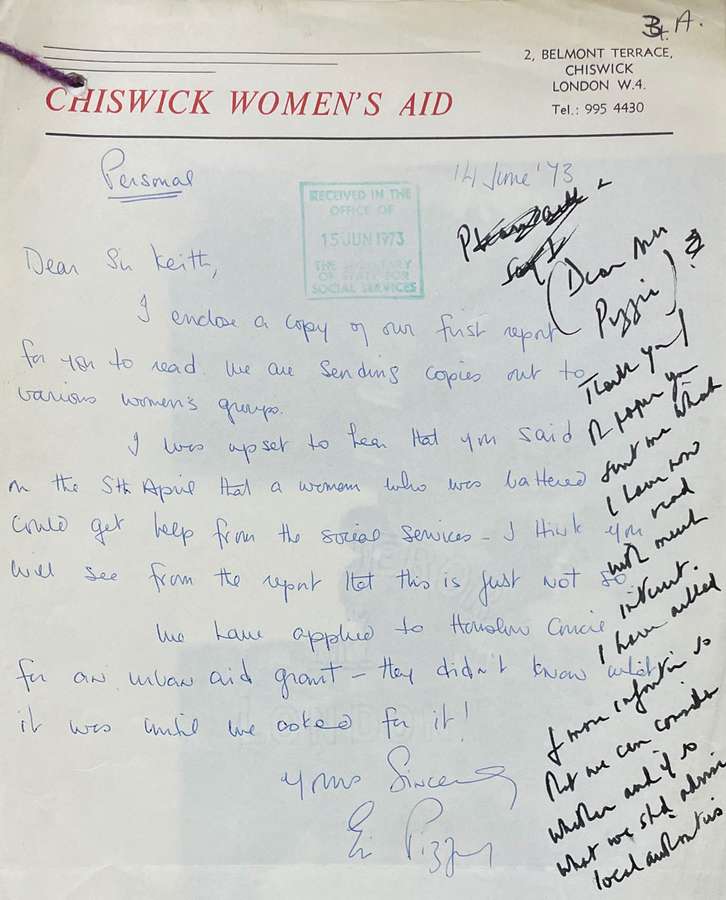 3. A.
2, BELMONT TERRACE,
CHISWICK
LONDON W.4.
Tel.: 995 4430
CHISWICK WOMEN'S AID
Personal
14 June '73
RECEIVED IN THE
OFFICE OF
15 JUN 1973
THE SECRETARY
OF STATE FOR
SOCIAL SERVICES
Dear Sir Keith,
I enclose a copy of our first report
for you to read. We are sending copies out to
various women's groups.
I was upset to hear that you said
on the 5th April that a woman who was battered
could get help from the social services - I think you
will see from the report that this is just not so.
We have applied to Hounslow Council
for an urban aid grant - they didn't know what
it was until we asked for it!
Yours Sincerely
Pizzey
(Dear Mrs
Pizzie)?
Thank you
paper you
sent me which
I have now
read
with much
interest.
I have asked
for more information so
that we can consider
whether and if so
what we shd advise
local authorities